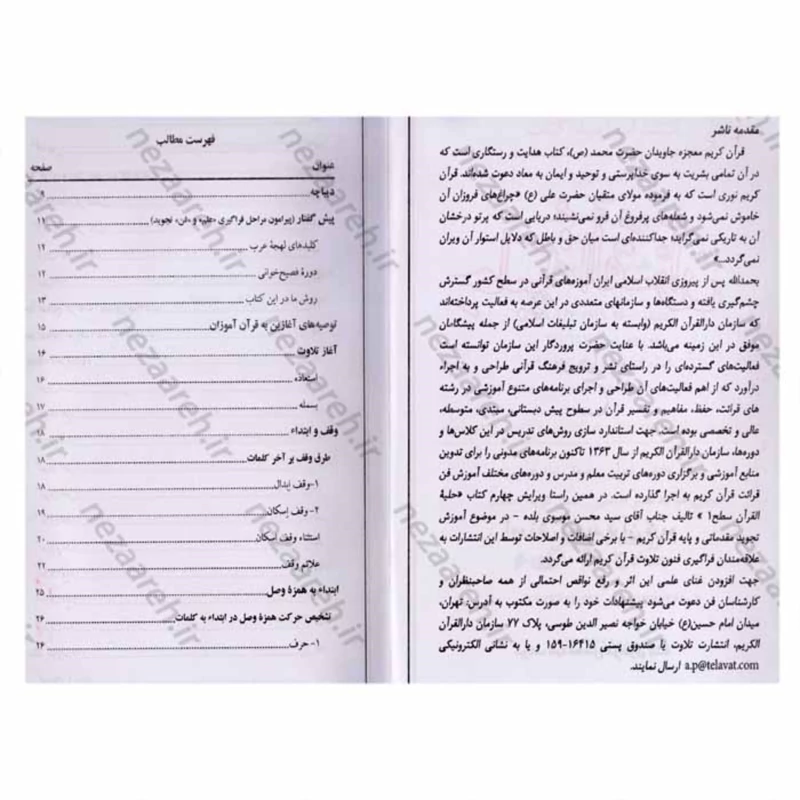 مقدمه ناشر
قرآن کریم معجزه جاویدان حضرت محمد (ص)، کتاب هدایت و رستگاری است که
در آن تمامی بشریت به سوی خداپرستی و توحید و ایمان به معاد دعوت شده‌اند. قرآن
کریم نوری است که به فرموده مولای متقیان حضرت علی (ع) «چراغ‌های فروزان آن
خاموش نمی‌شود و شعله‌های پرفروغ آن فرو نمی‌نشیند؛ دریایی است که پرتو درخشان
آن به تاریکی نمی‌گراید؛ جداکننده‌ای است میان حق و باطل که دلایل استوار آن ویران
نمی‌گردد...»
بحمدالله پس از پیروزی انقلاب اسلامی ایران آموزه‌های قرآنی در سطح کشور گسترش
چشم‌گیری یافته و دستگاه‌ها و سازمانهای متعددی در این عرصه به فعالیت پرداخته‌اند
که سازمان دارالقرآن الکریم (وابسته به سازمان تبلیغات اسلامی) از جمله پیشگامان
موفق در این زمینه می‌باشد. با عنایت حضرت پروردگار این سازمان توانسته است
فعالیت‌های گسترده‌ای را در راستای نشر و ترویج فرهنگ قرآنی طراحی و به اجراء
درآورد که از اهم فعالیت‌های آن طراحی و اجرای برنامه‌های متنوع آموزشی در رشته
های قرائت، حفظ، مفاهیم و تفسیر قرآن در سطوح پیش دبستانی، مبتدی، متوسطه،
عالی و تخصصی بوده است. جهت استاندارد سازی روش‌های تدریس در این کلاس‌ها و
دوره‌ها، سازمان دارالقرآن الکریم از سال ۱۳۶۳ تاکنون برنامه‌های مدونی را برای تدوین
منابع آموزشی و برگزاری دوره‌های تربیت معلم و مدرس و دوره‌های مختلف آموزش فن
قرائت قرآن کریم به اجرا گذارده است. در همین راستا ویرایش چهارم کتاب «حلیة
القرآن سطح۱ » تالیف جناب آقای سید محسن موسوی بلده - در موضوع آموزش
تجوید مقدماتی و پایه قرآن کریم - با برخی اضافات و اصلاحات توسط این انتشارات به
علاقه‌مندان فراگیری فنون تلاوت قرآن کریم ارائه می‌گردد.
جهت افزودن غنای علمی این اثر و رفع نواقص احتمالی از همه صاحبنظران و
کارشناسان فن دعوت می‌شود پیشنهادات خود را به صورت مکتوب به آدرس: تهران،
میدان امام حسین(ع) خیابان خواجه نصیر الدین طوسی، پلاک ۷۷ سازمان دارالقرآن
الکریم، انتشارات تلاوت یا صندوق پستی ۱۶۴۱۵-۱۵۹ و یا به نشانی الکترونیکی
a.p@telavat.com ارسال نمایند.
فهرست مطالب
عنوان صفحه
دیباچه ۹
پیش گفتار (پیرامون مراحل فراگیری «علم» و «فن» تجوید) ۱۱
کلیدهای لهجۀ عرب ۱۲
دورۀ فصیح‌خوانی ۱۲
روش ما در این کتاب ۱۳
توصیه‌های آغازین به قرآن آموزان ۱۵
آغاز تلاوت ۱۶
استعاذه ۱۶
بسمله ۱۷
وقف و ابتداء ۱۸
طرق وقف بر آخر کلمات ۱۸
۱-وقف إبدال ۱۸
۲- وقف إسکان ۱۹
استثناء وقف إسکان ۲۰
علائم وقف ۲۲
ابتداء به همزۀ وصل ۲۵
تشخیص حرکت همزۀ وصل در ابتداء به کلمات ۲۶
۱-حرف ۲۶
nezaareh.ir